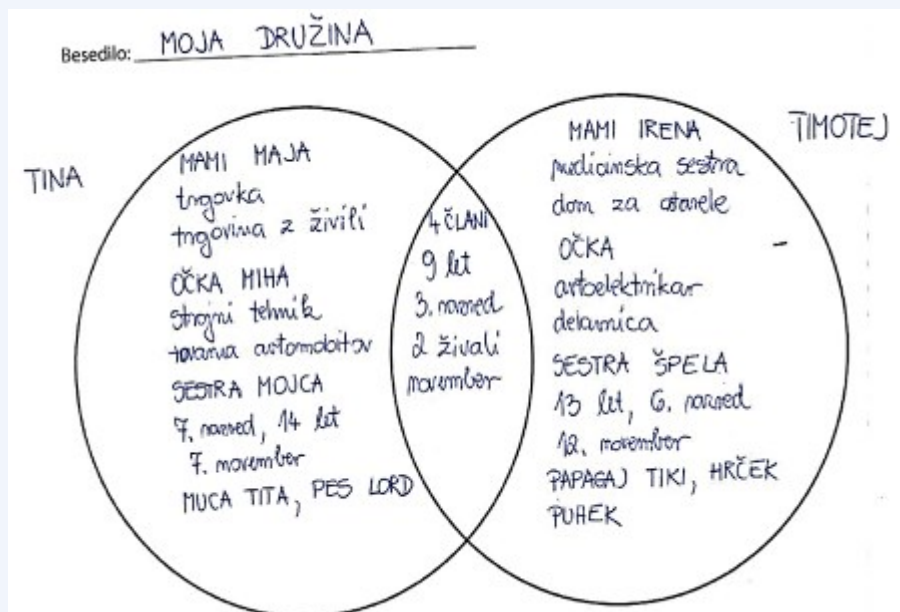 Besedilo: MOJA DRUŽINA
TINA
MAMI MAJA
trgovka
trgovina z živili
OČKA MIHA
strojni tehnik
tovarna avtomobilov
SESTRA MOJCA
7. razred, 14 let
7. november
MUCA TITA, PES LORD
4 ČLANI
9 let
3. razred
2 živali
november
TIMOTEJ
MAMI IRENA
medicinska sestra
dom za ostarele
OČKA
avtoelektrikar
delavnica
SESTRA ŠPELA
13 let, 6. razred
12. november
PAPAGAJ TIKI, HRČEK
PUHEK